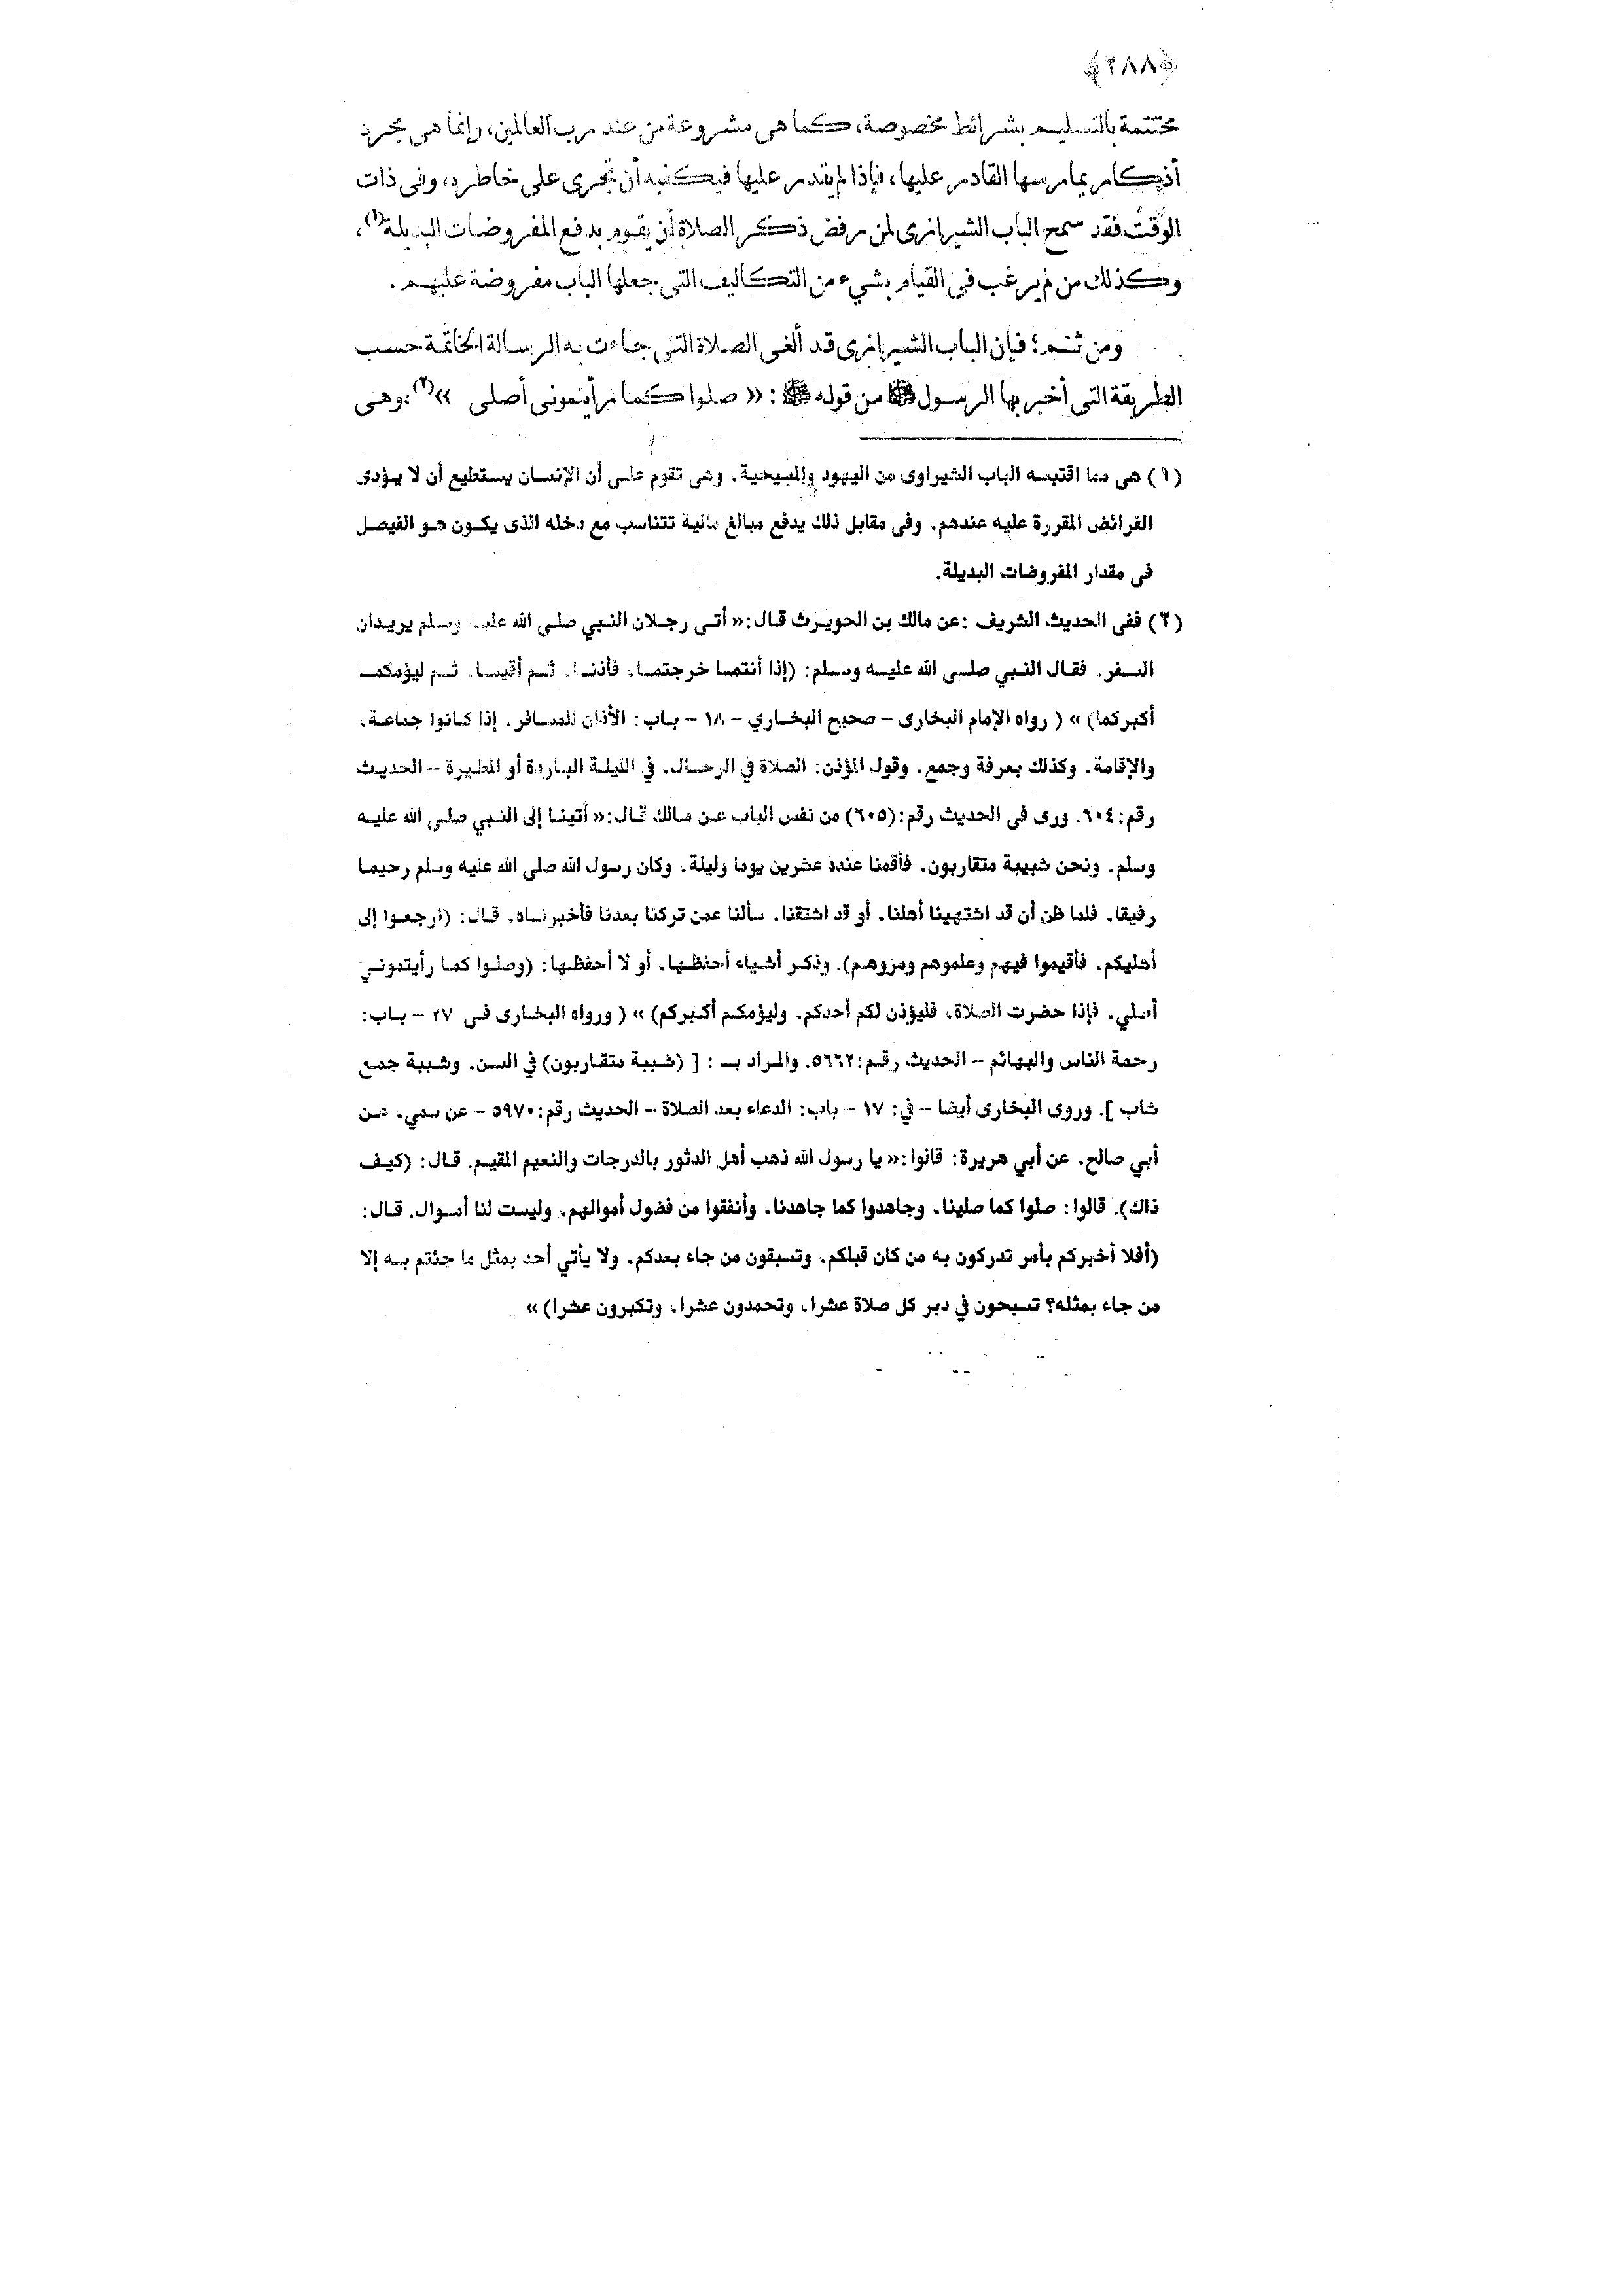 ﴿٢٨٨﴾
مختتمة بالتسليم بشرائط مخصوصة، كما هى مشروعة من عند رب العالمين، وإنما هى مجرد
أذكار يمارسها القادر عليها، فإذا لم يقدر عليها فيكفيه أن تجرى على خاطره، وفى ذات
الوقت فقد سمح الباب الشيرازى لمن رفض ذكر الصلاة أن يقوم بدفع المفروضات البديلة(١)،
وكذلك من لم يرغب فى القيام بشىء من التكاليف التى جعلها الباب مفروضة عليهم.
ومن ثم؛ فإن الباب الشيرازى قد ألغى الصلاة التى جاءت به الرسالة الخاتمة حسب
الطريقة التى أخبر بها الرسول ﷺ من قوله ﷺ: « صلوا كما رأيتمونى أصلى »(٢)؛ وهى
(١) هى مما اقتبسه الباب الشيراوى من اليهود والمسيحية، وهى تقوم على أن الإنسان يستطيع أن لا يؤدى
الفرائض المقررة عليه عندهم، وفى مقابل ذلك يدفع مبالغ مالية تتناسب مع دخله الذى يكون هو الفيصل
فى مقدار المفروضات البديلة.
(٢) ففى الحديث الشريف :عن مالك بن الحويرث قال:« أتى رجلان النبي صلى الله عليه وسلم يريدان
السفر، فقال النبي صلى الله عليه وسلم: (إذا أنتما خرجتما، فأذنا، ثم أقيما، ثم ليؤمكما
أكبركما) » ( رواه الإمام البخارى – صحيح البخاري – ١٨ – باب: الأذان للمسافر، إذا كانوا جماعة،
والإقامة، وكذلك بعرفة وجمع، وقول المؤذن: الصلاة في الرحال، في الليلة الباردة أو المطيرة – الحديث
رقم:٦٠٤، ورى فى الحديث رقم:(٦٠٥) من نفس الباب عن مالك قال:« أتينا إلى النبي صلى الله عليه
وسلم، ونحن شبيبة متقاربون، فأقمنا عنده عشرين يوما وليلة، وكان رسول الله صلى الله عليه وسلم رحيما
رفيقا، فلما ظن أن قد اشتهينا أهلنا، أو قد اشتقنا، سألنا عمن تركنا بعدنا فأخبرناه، قال: (ارجعوا إلى
أهليكم، فأقيموا فيهم وعلموهم ومروهم). وذكر أشياء أحفظها، أو لا أحفظها: (وصلوا كما رأيتموني
أصلي، فإذا حضرت الصلاة، فليؤذن لكم أحدكم، وليؤمكم أكبركم) » ( ورواه البخارى فى ٢٧ – باب:
رحمة الناس والبهائم – الحديث رقم:٥٦٦٢، والمراد بـ : [ (شببة متقاربون) في السن، وشببة جمع
شاب ]. وروى البخارى أيضا – في: ١٧ – باب: الدعاء بعد الصلاة – الحديث رقم:٥٩٧٠ – عن سمي، عن
أبي صالح، عن أبي هريرة: قالوا:« يا رسول الله ذهب أهل الدثور بالدرجات والنعيم المقيم. قال: (كيف
ذاك). قالوا: صلوا كما صلينا، وجاهدوا كما جاهدنا، وأنفقوا من فضول أموالهم، وليست لنا أموال. قال:
(أفلا أخبركم بأمر تدركون به من كان قبلكم، وتسبقون من جاء بعدكم، ولا يأتي أحد بمثل ما جئتم به إلا
من جاء بمثله؟ تسبحون في دبر كل صلاة عشرا، وتحمدون عشرا، وتكبرون عشرا) »